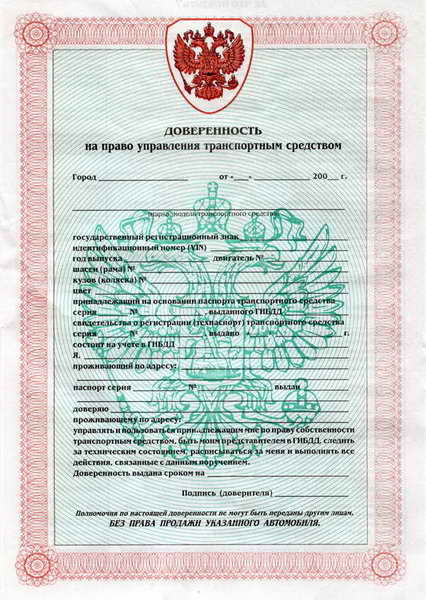 ДОВЕРЕННОСТЬ
на право управления транспортным средством
Город от «___» ______________ 200___ г.
марка, модель транспортного средства
государственный регистрационный знак
идентификационный номер (VIN)
год выпуска , двигатель №
шасси (рама) №
кузов (коляска) №
цвет
принадлежащий на основании паспорта транспортного средства
серия № , выданного ГИБДД
свидетельства о регистрации (техпаспорт) транспортного средства
серия № , выдано г.
состоит на учете в ГИБДД
Я,
проживающий по адресу:
паспорт серия № выдан
доверяю
проживающему по адресу:
управлять и пользоваться принадлежащим мне по праву собственности
транспортным средством, быть моим представителем в ГИБДД, следить
за техническим состоянием, расписываться за меня и выполнять все
действия, связанные с данным поручением.
Доверенность выдана сроком на
Подпись (доверителя)
Полномочия по настоящей доверенности не могут быть переданы другим лицам,
БЕЗ ПРАВА ПРОДАЖИ УКАЗАННОГО АВТОМОБИЛЯ.